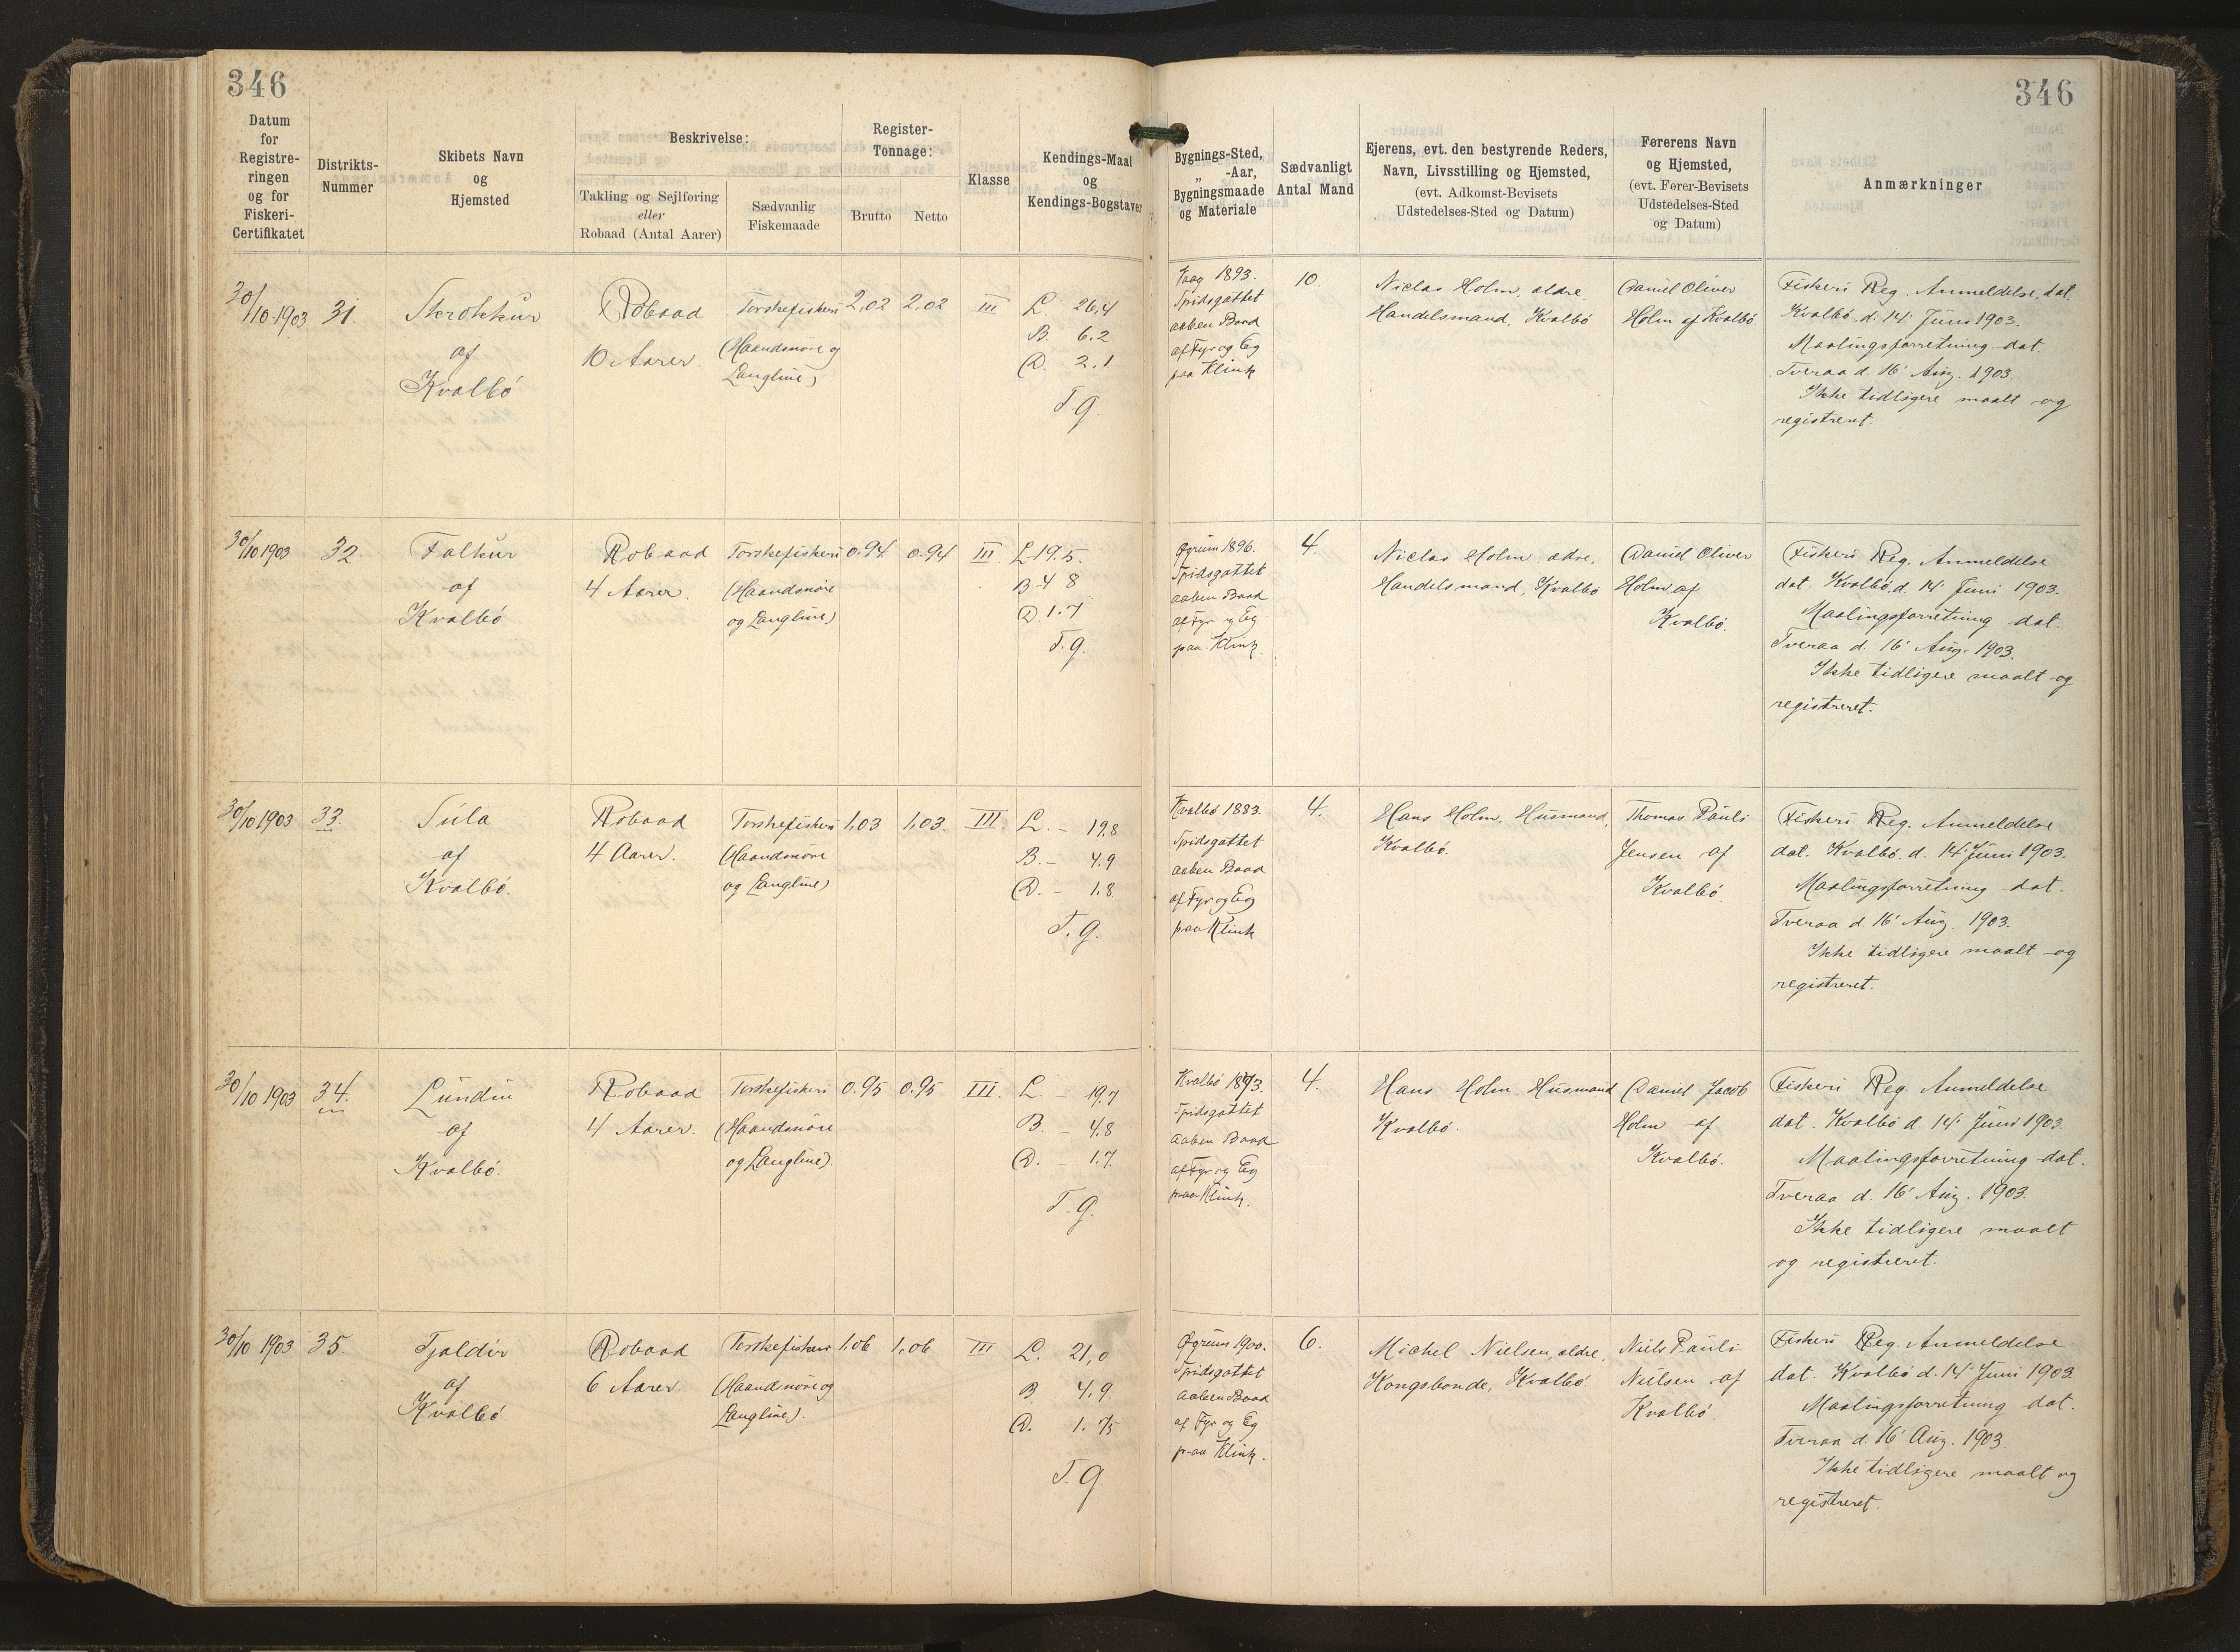 346
346
Datum
for
Registre-
ringen
og for
Fiskeri-
Certifikatet
Distrikts-
Nummer
Skibets Navn
og
Hjemsted
Beskrivelse:
Takling og Sejlføring
eller
Robaad (Antal Aarer)
Sædvanlig
Fiskemaade
Register-
Tonnage:
Brutto
Netto
Klasse
Kendings-Maal
og
Kendings-Bogstaver
Bygnings-Sted,
„ -Aar,
Bygningsmaade
og Materiale
Sædvanligt
Antal Mand
Ejerens, evt. den bestyrende Reders,
Navn, Livsstilling og Hjemsted,
(evt. Adkomst-Bevisets
Udstedelses-Sted og Datum)
Førerens Navn
og Hjemsted,
(evt. Fører-Bevisets
Udstedelses-Sted
og Datum)
Anmærkninger
30/10 1903
31.
Skrokkur
af
Kvalbö
Robaad
10 Aarer.
Torskefiskeri
(Haandsnöre og
Langline)
2,02
2,02
III
L. 26,4
B. 6.2
D. 2.1
T g.
Vaag 1893.
Spidsgattet
aaben Baad
af Fyr og Eg
paa Klink
10.
Niclas Holm, ældre,
Handelsmand, Kvalbö
Daniel Oliver
Holm af Kvalbö
Fiskeri Reg. Anmeldelse, dat.
Kvalbö, d. 14' Juni 1903.
Maalingsforretning dat.
Tveraa d. 16' Aug. 1903.
Ikke tidligere maalt og
registreret.
30/10 1903
32.
Falkur
af
Kvalbö
Robaad
4 Aarer.
Torskefiskeri
(Haandsnöre
og Langline)
0.94
0.94
III.
L 19.5.
B 4 8
D. 1.7
T. g.
Øgrum 1896.
Spidsgattet
aaben Baad
af Fyr og Eg
paa Klink.
4.
Niclas Holm, ældre,
Handelsmand, Kvalbö
Daniel Oliver
Holm af
Kvalbö.
Fiskeri Reg. Anmeldelse
dat. Kvalbö, d. 14' Juni 1903.
Maalingsforretning dat.
Tveraa d. 16' Aug. 1903.
Ikke tidligere maalt og
registreret.
30/10 1903
33.
Súla
af
Kvalbö.
Robaad
4 Aarer.
Torskefiskeri
(Haandsnöre
og Langline)
1,03
1,03.
III.
L. – 19.8
B. – 4.9
D. – 1.8
T. g.
Kvalbö 1883.
Spidsgattet
aaben Baad
af Fyr og Eg
paa Klink
4.
Hans Holm, Husmand,
Kvalbö.
Thomas Pauli
Jensen af
Kvalbö.
Fiskeri Reg. Anmeldelse
dat. Kvalbö. d. 14' Juni 1903.
Maalingsforretning dat.
Tveraa d. 16' Aug. 1903.
Ikke tidligere maalt og
registreret.
30/10 1903
34.
Lundin
af
Kvalbö.
Robaad
4 Aarer.
Torskefiskeri
(Haandsnöre
og Langline).
0.95
0.95
III.
L. – 19.7
B. – 4.8
D. – 1.7.
T. g.
Kvalbö
Spidsgattet
aaben Baad
af Fyr og Eg
paa Klink.
4.
Hans Holm, Husmand
Kvalbö.
Daniel Jacob
Holm af
Kvalbö.
Fiskeri Reg. Anmeldelse
dat. Kvalbö d. 14' Juni 1903.
Maalingsforretning dat.
Tveraa d. 16' Aug. 1903.
Ikke tidligere maalt
og registreret.
30/10 1903
35.
Tjaldur
af
Kvalbö
Robaad
6 Aarer.
Torskefiskeri
(Haandsnöre og
Langline).
1,06
1,06
III
L. 21,0
B. 4,9.
D. 1.75
T. g.
Øgrum 1900.
Spidsgattet
aaben Baad
af Fyr og Eg
paa Klink.
6.
Michel Nielsen, ældre,
Kongsbonde, Kvalbö
Niels Pauli
Nielsen af
Kvalbö.
Fiskeri Reg. Anmeldelse
dat. Kvalbö d. 14' Juni 1903.
Maalingsforretning dat.
Tveraa d. 16' Aug. 1903.
Ikke tidligere maalt og
registreret.